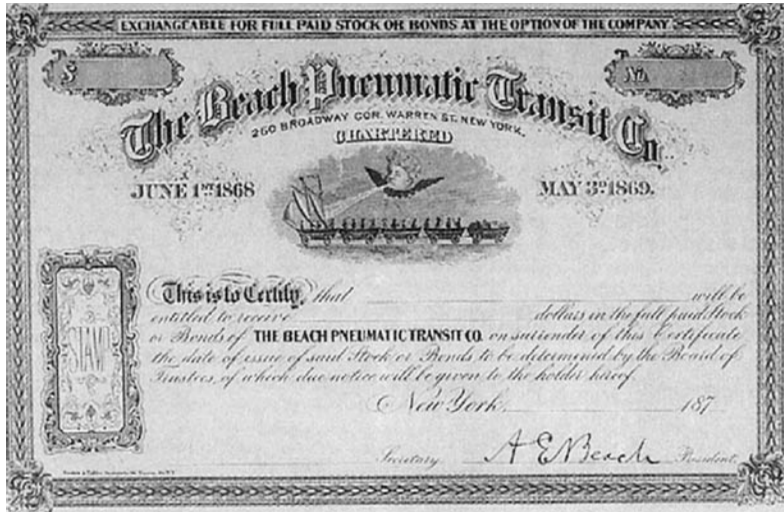 EXCHANGEABLE FOR FULL PAID STOCK OR BONDS AT THE OPTION OF THE COMPANY
$
No.
The Beach Pneumatic Transit Co.
260 BROADWAY COR. WARREN ST. NEW YORK.
CHARTERED
JUNE 1ST 1868
MAY 3D 1869.
This is to Certify, that will be
entitled to receive dollars in the full paid Stock
or Bonds of THE BEACH PNEUMATIC TRANSIT CO. on surrender of this Certificate
the date of issue of said Stock or Bonds to be determined by the Board of
Trustees, of which due notice will be given to the holder hereof.
STAMP
New York, 187
Secretary A E Beach President.